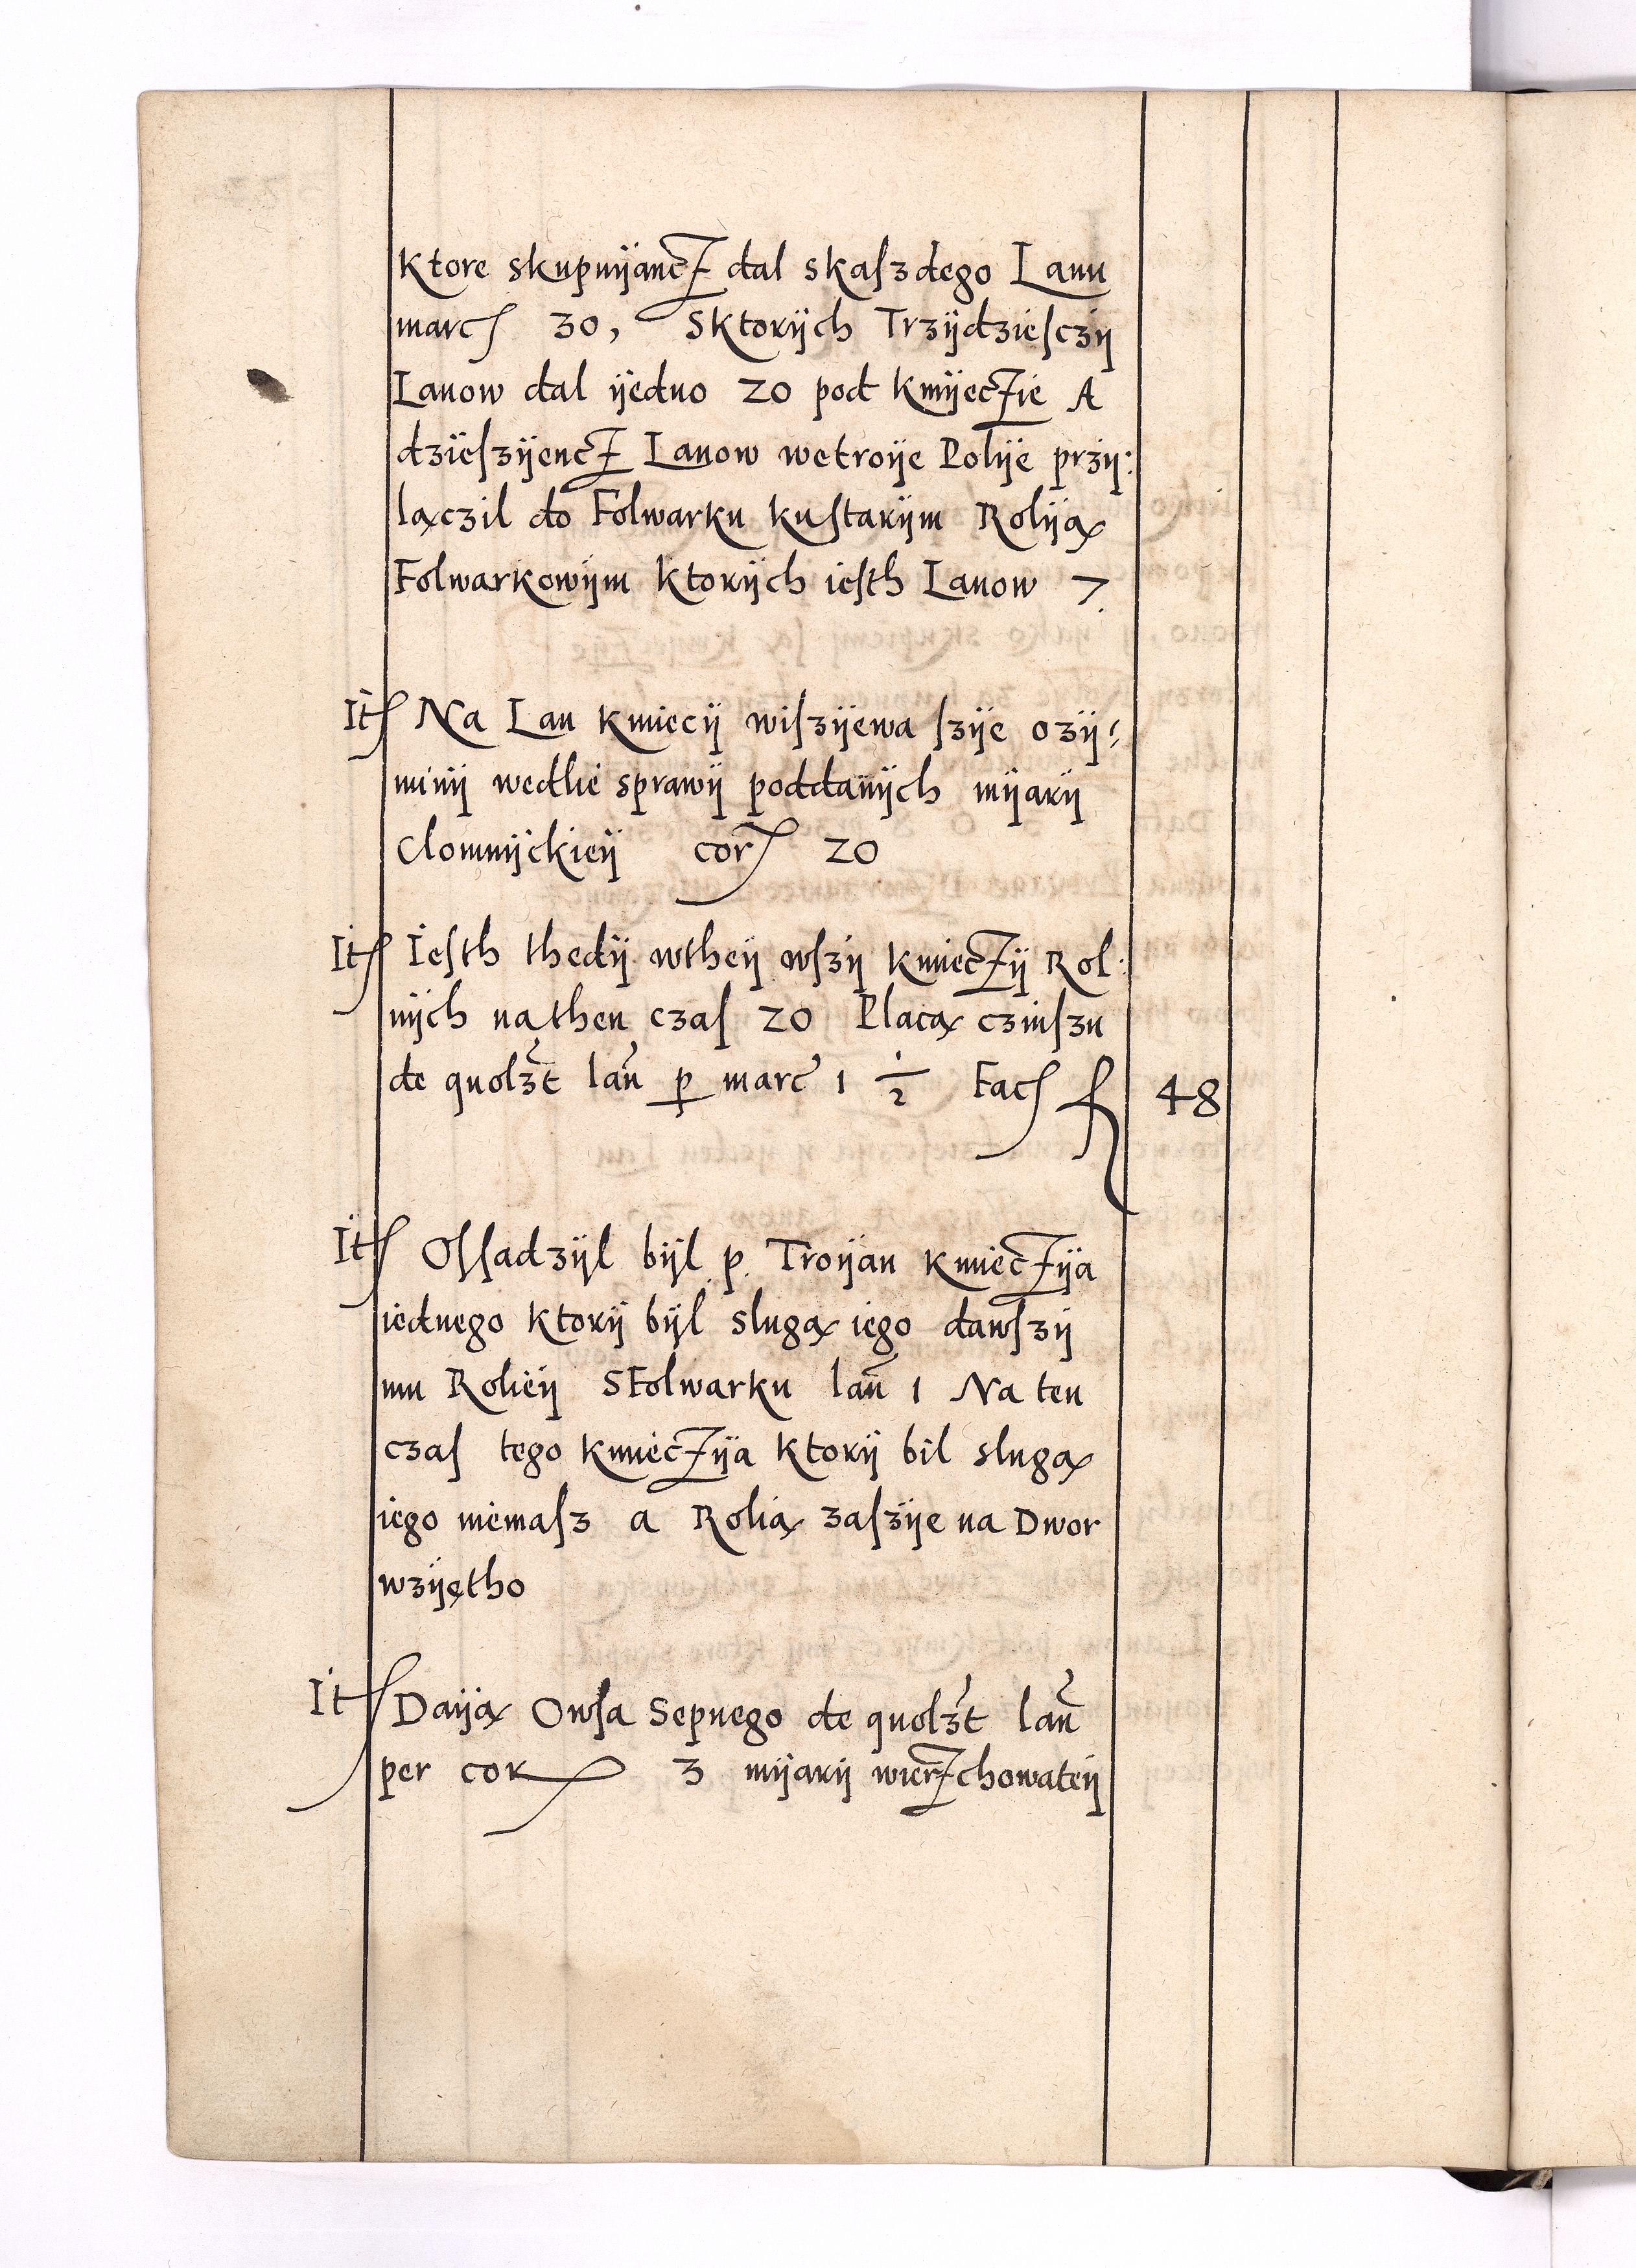 Ktore skupuijancz dal skaſzdego Lanu
marcſ 30, Sktorÿch Trzÿdzieſczÿ
Lanow dal ÿedno 20 pod Kmÿeczie A
dzieſzÿencz Lanow wetroÿe Polÿe przÿ:
lączil do Folwarku kuſtarÿm Rolÿą
Folwarkowÿm Ktorÿch ieſth Lanow 7.
Itſ Na Lan Kmiecÿ wiſzÿewa ſzÿe ozÿ:
minÿ wedlie sprawÿ poddanÿch mÿarÿ
Clomnÿckieÿ cor 20
Itſ Ieſth thedÿ wtheÿ wſzÿ Kmieczÿ Rol:
nÿch na then czaſ 20 Placą czinſzu
de quolzt lan p marc 1 1/2 Facſ f 48
Itſ Oſſadzÿl bÿl p. Troÿan Kmieczÿa
iednego Ktorÿ bÿl slugą iego dawſzÿ
mu Rolieÿ SFolwarku lan 1 Na ten
czaſ tego Kmieczÿa Ktorÿ bil slugą
iego niemaſz a Rolią zaſzÿe na Dwor
wzÿętho
Itſ Daÿą Owſa Sepnego de quolzt lan
per cor 3 mÿarÿ wierzchowateÿ